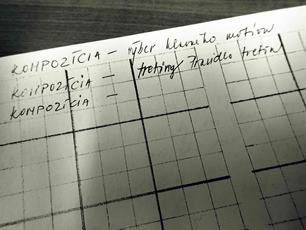 KOMPOZÍCIA - výber hlavného motívu
KOMPOZÍCIA - tretiny Pravidlo tretín
KOMPOZÍCIA